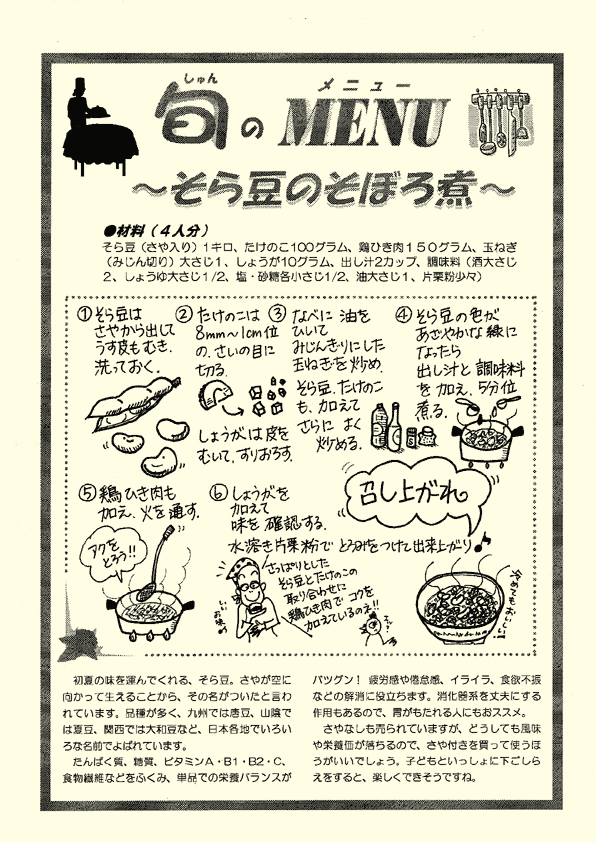 しゅん
メニュー
旬のMENU
～そら豆のそぼろ煮～
●材料（４人分）
そら豆（さや入り）１キロ、たけのこ100グラム、鶏ひき肉１５０グラム、玉ねぎ
（みじん切り）大さじ１、しょうが10グラム、出し汁2カップ、調味料（酒大さじ
2、しょうゆ大さじ1/2、塩・砂糖各小さじ1/2、油大さじ1、片栗粉少々）
①そら豆は
さやから出して
うす皮もむき、
洗っておく。
②たけのこは
8mm～1cm位
の、さいの目に
切る。
しょうがは皮を
むいて、すりおろす。
③なべに油を
ひいて
みじんぎりにした
玉ねぎを炒め、
そら豆、たけのこ
も、加えて
さらによく
炒める。
④そら豆の色が
あざやかな緑に
なったら
出し汁と調味料
を加え、5分位
煮る。
⑤鶏ひき肉も
加え、火を通す。
アクを
とろう!!
⑥しょうがを
加えて
味を確認する。
水溶き片栗粉でとろみをつけて出来上がり♪
召し上がれ。
さっぱりとした
そら豆とたけのこの
取り合わせに
鶏ひき肉でコクを
加えているのね!!
いいお味♪
冷めてもおいしい!
初夏の味を運んでくれる、そら豆。さやが空に
向かって生えることから、その名がついたと言わ
れています。品種が多く、九州では唐豆、山陰で
は夏豆、関西では大和豆など、日本各地でいろい
ろな名前でよばれています。
たんぱく質、糖質、ビタミンA・B1・B2・C、
食物繊維などをふくみ、単品での栄養バランスが
バツグン！ 疲労感や倦怠感、イライラ、食欲不振
などの解消に役立ちます。消化器系を丈夫にする
作用もあるので、胃がもたれる人にもおススメ。
さやなしも売られていますが、どうしても風味
や栄養価が落ちるので、さや付きを買って使うほ
うがいいでしょう。子どもといっしょに下ごしら
えをすると、楽しくできそうですね。